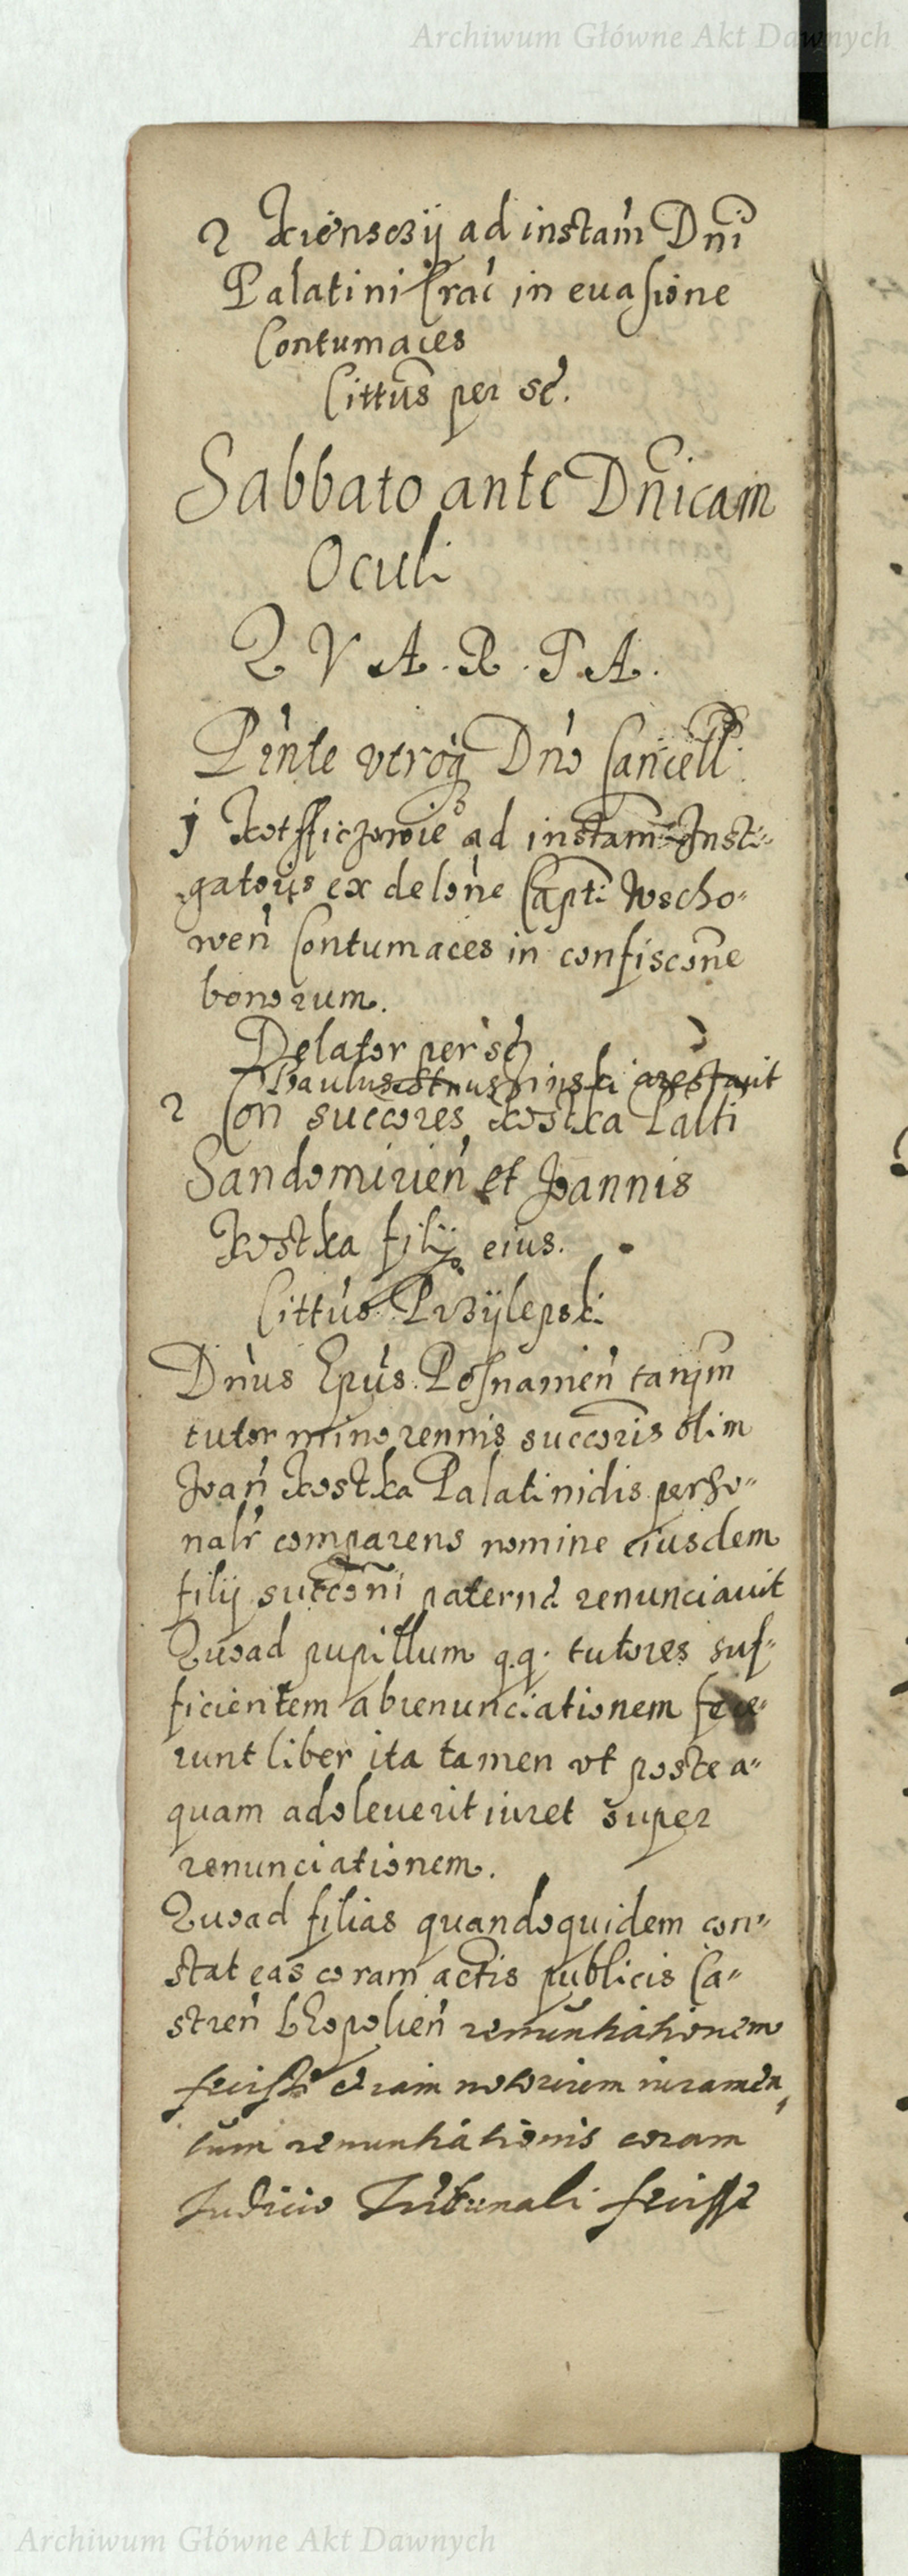 Archiwum Główne Akt Dawnych
2 Xiensczÿ ad instam Dni
Palatini Crac in euasione
Contumaces
Cittus per se.
Sabbato ante Dnicam
Oculi
Q V A . R . T A .
Pente vtroq Dno Cancell
j ad instam Insti-
gatoris ex delone Capt. Wscho-
wen Contumaces in confiscone
bonorum.
Delator per se
Paulus arestauit
2 Con succores Kostka Palti
Sandomirien et Joannis
Kostka filÿ eius.
Cittus Przÿlepski
Dnus Epus Posnanien tanqm
tutor minorennis succoris olim
Joan Kostka Palatinidis perso-
nalr comparens nomine eiusdem
filÿ succoni paterna renunciauit
Quoad pupillum q.q. tutores suf-
ficientem abrenunciationem fece-
runt liber ita tamen vt postea-
quam adoleuerit iuret super
renunciationem.
Quoad filias quandoquidem con-
stat eas coram actis publicis Ca-
stren Leopolien renuntiationem
fecisse
tum renuntiationis coram
Judicio Tribunali fecisse
Archiwum Główne Akt Dawnych